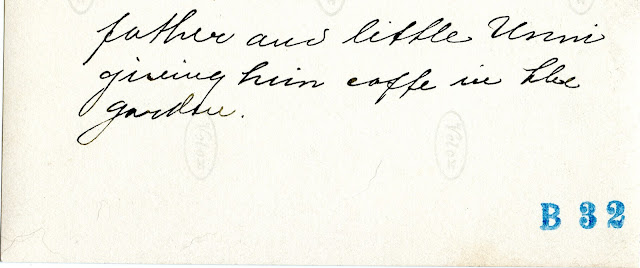 father and little Unni
giving him coffe in the
garden.
Velox
Velox
B 32